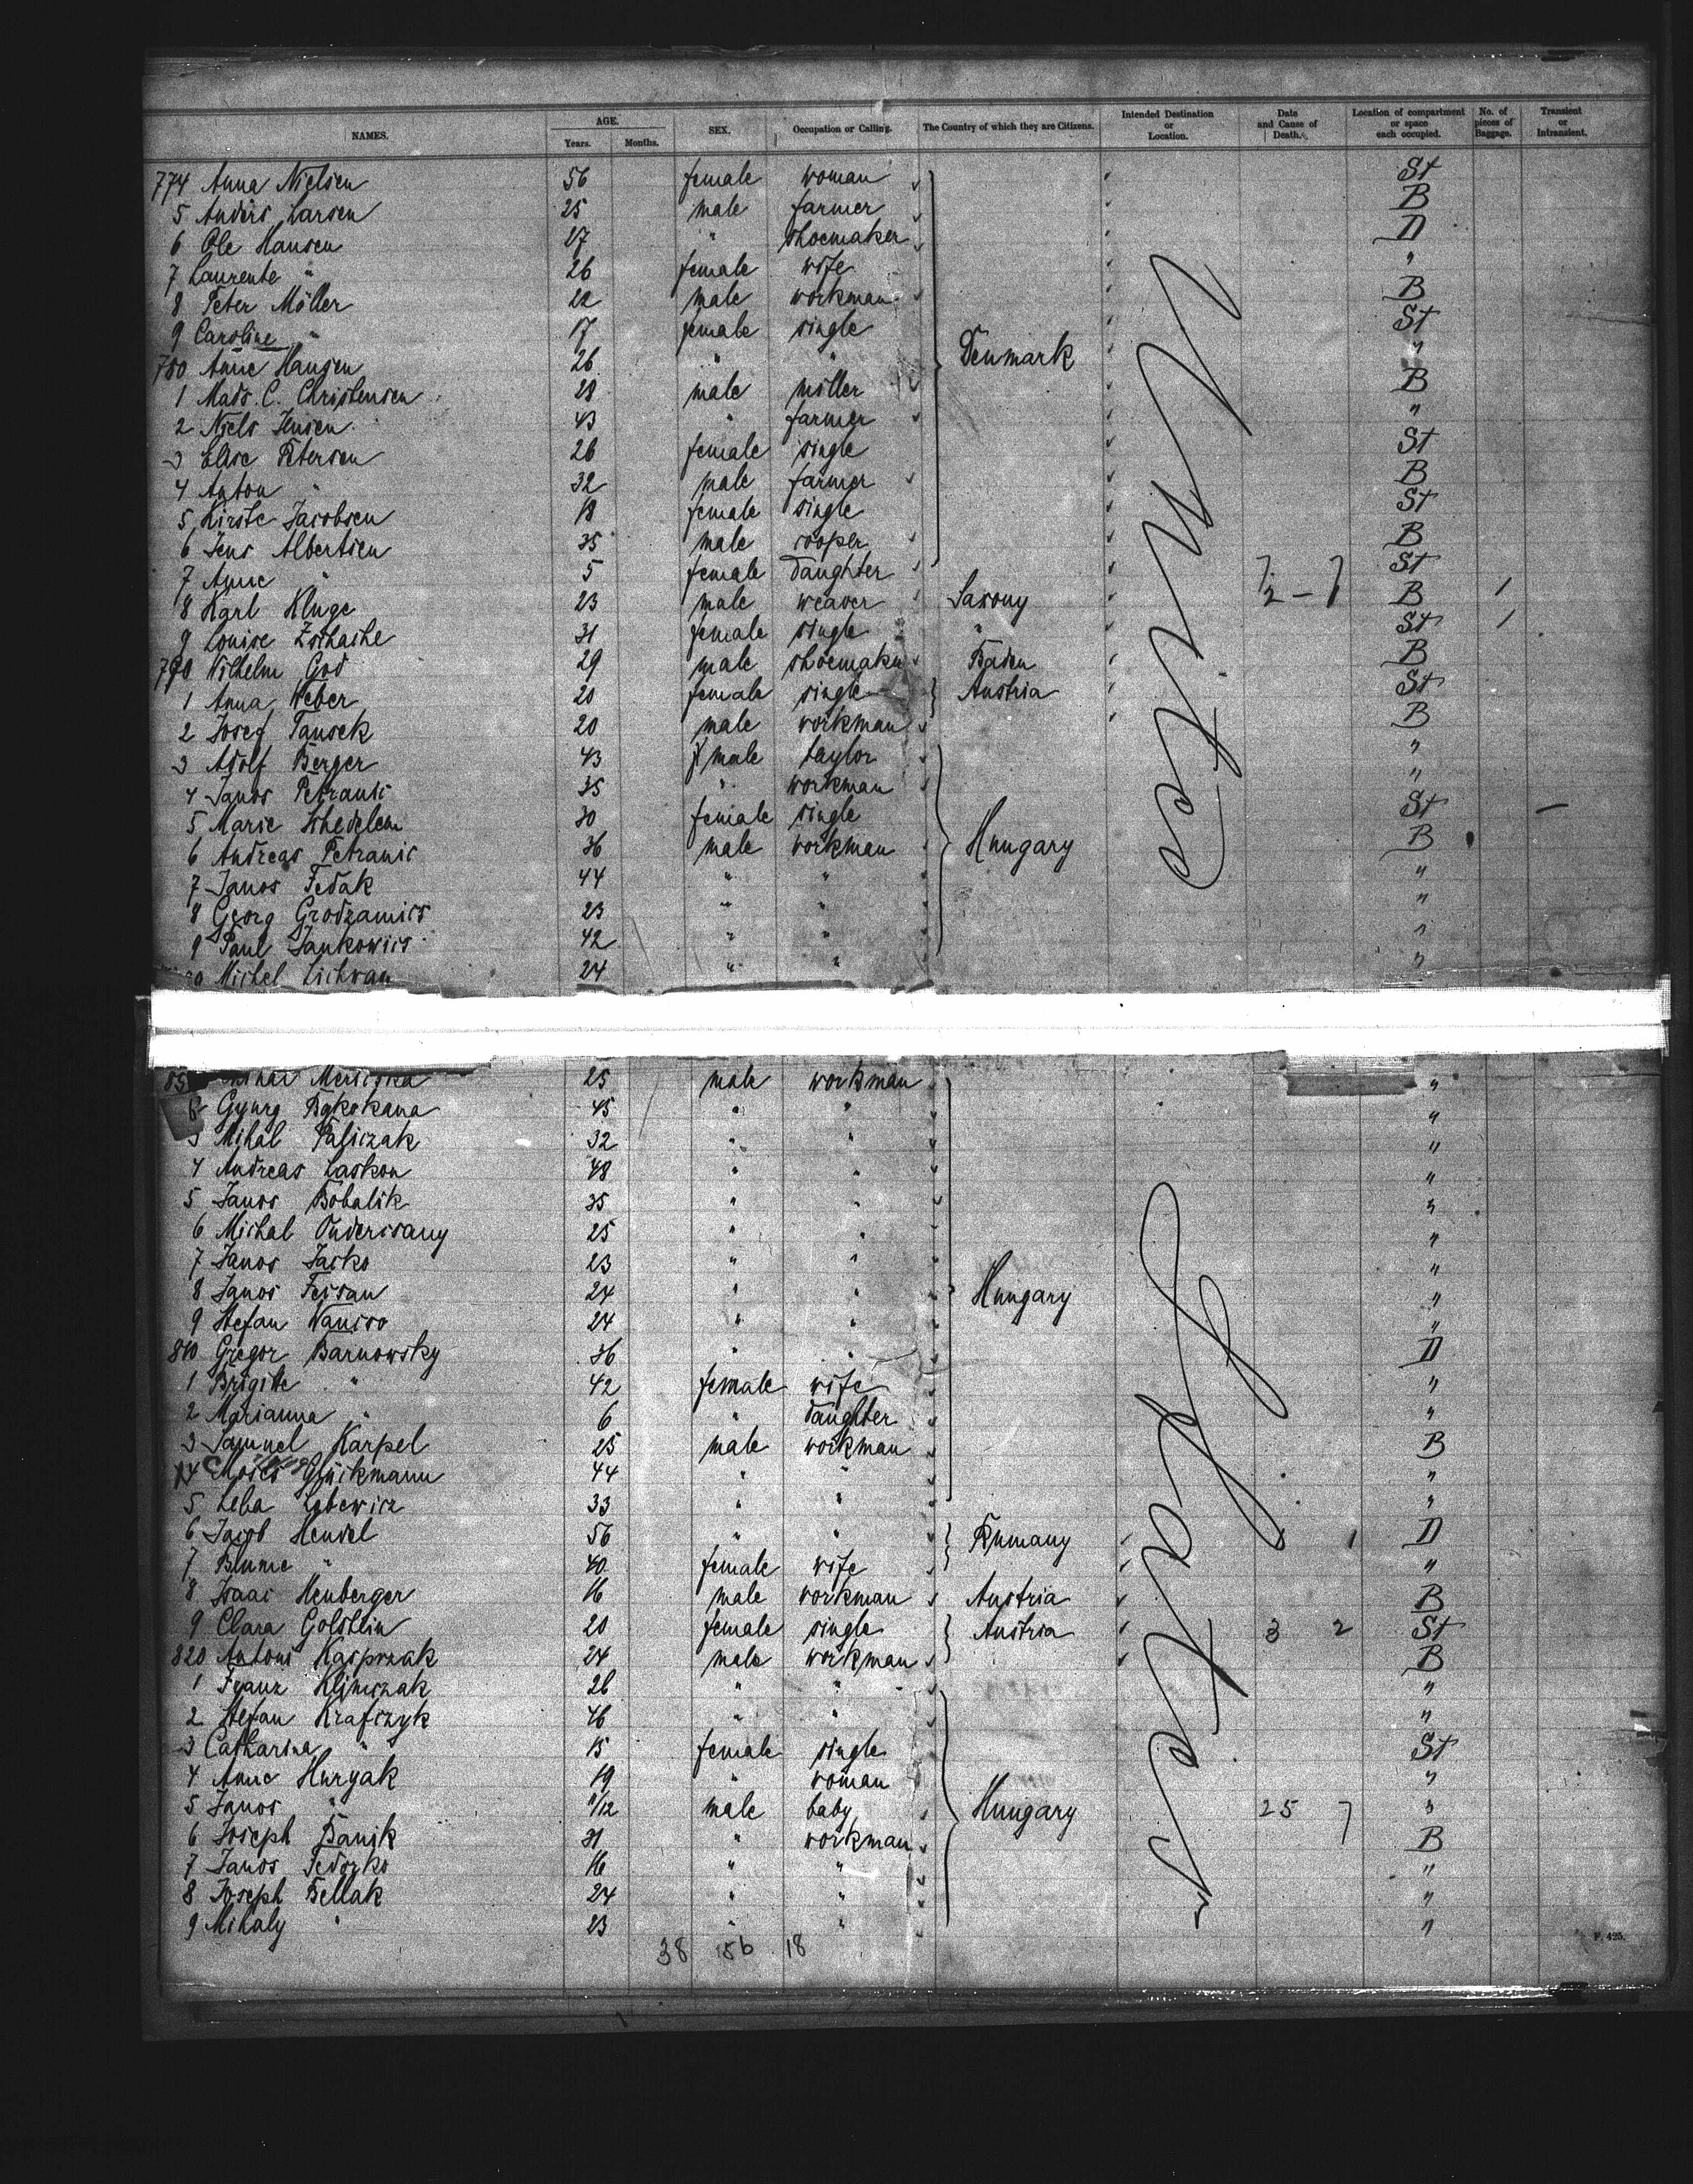 NAMES. AGE. Years. Months. SEX. Occupation or Calling. The Country of which they are Citizens. Intended Destination or Location. Date and Cause of Death. Location of compartment or space each occupied. No. of pieces of Baggage. Transient or Intransient.
774 Anna Nielsen 56 female woman St
5 Anders Larsen 25 male farmer B
6 Ole Hansen 27 " shoemaker D
7 Laurente " 26 female wife "
8 Peter Möller 22 male workman B
9 Caroline " 17 female single St
780 Anne Hansen 26 " " Denmark "
1 Mads C. Christensen 28 male miller B
2 Niels Jensen 43 " farmer "
3 Elise Petersen 26 female single St
4 Anton " 32 male farmer B
5 Kirste Jacobsen 18 female single St
6 Jens Albertsen 35 male cooper B
7 Anne " 5 female daughter St
8 Karl Kluge 23 male weaver Saxony B 1
9 Louise Zschache 31 female single " St 1
790 Wilhelm God 29 male shoemaker Baden B
1 Anna Weber 20 female single Austria St
2 Josef Tausek 20 male workman B
3 Adolf Berger 43 male taylor "
4 Janos Petranic 35 " workman "
5 Marie 30 female single St —
6 Andreas Petranic 36 male workman Hungary B
7 Janos Fedak 44 " " "
8 Georg Grodzamics 23 " " "
9 Paul Jankowics 42 " " "
0 Michel Lichvan 24 " " "
25 male workman "
Gyurg 45 " " "
3 Mihal Pasiczak 32 " " "
4 Andreas Laskon 48 " " "
5 Janos Bobalik 35 " " "
6 Michal Ondercsany 25 " " "
7 Janos Jacko 23 " " "
8 Janos Fecsau 24 " " Hungary "
9 Stefan Wanico 24 " " "
810 Gregor Barnowsky 36 " " D
1 Brigitte " 42 female wife "
2 Marianna " 6 " daughter "
3 Samuel Karpel 25 male workman B
14 Moses Glückmann 44 " " "
5 Leba Labewicz 33 " " "
6 Jacob Hendel 56 " " Rumany 1 D
7 Blume " 40 female wife "
8 Isaac Henberger 16 male workman Austria B
9 Clara Goldstein 20 female single Austria 3 2 St
820 Antoni Kasprzak 24 male workman B
1 Franz Klimczak 26 " " "
2 Stefan Krafczyk 46 " " "
3 Catharina " 15 female single St
4 Anne Huryak 19 " woman "
5 Janos " 11/12 male baby Hungary 25 7 "
6 Joseph Banik 31 " workman B
7 Janos Fedorko 16 " " "
8 Joseph Bellak 24 " " "
9 Mihaly " 23 " " "
38 56 18
F. 425.